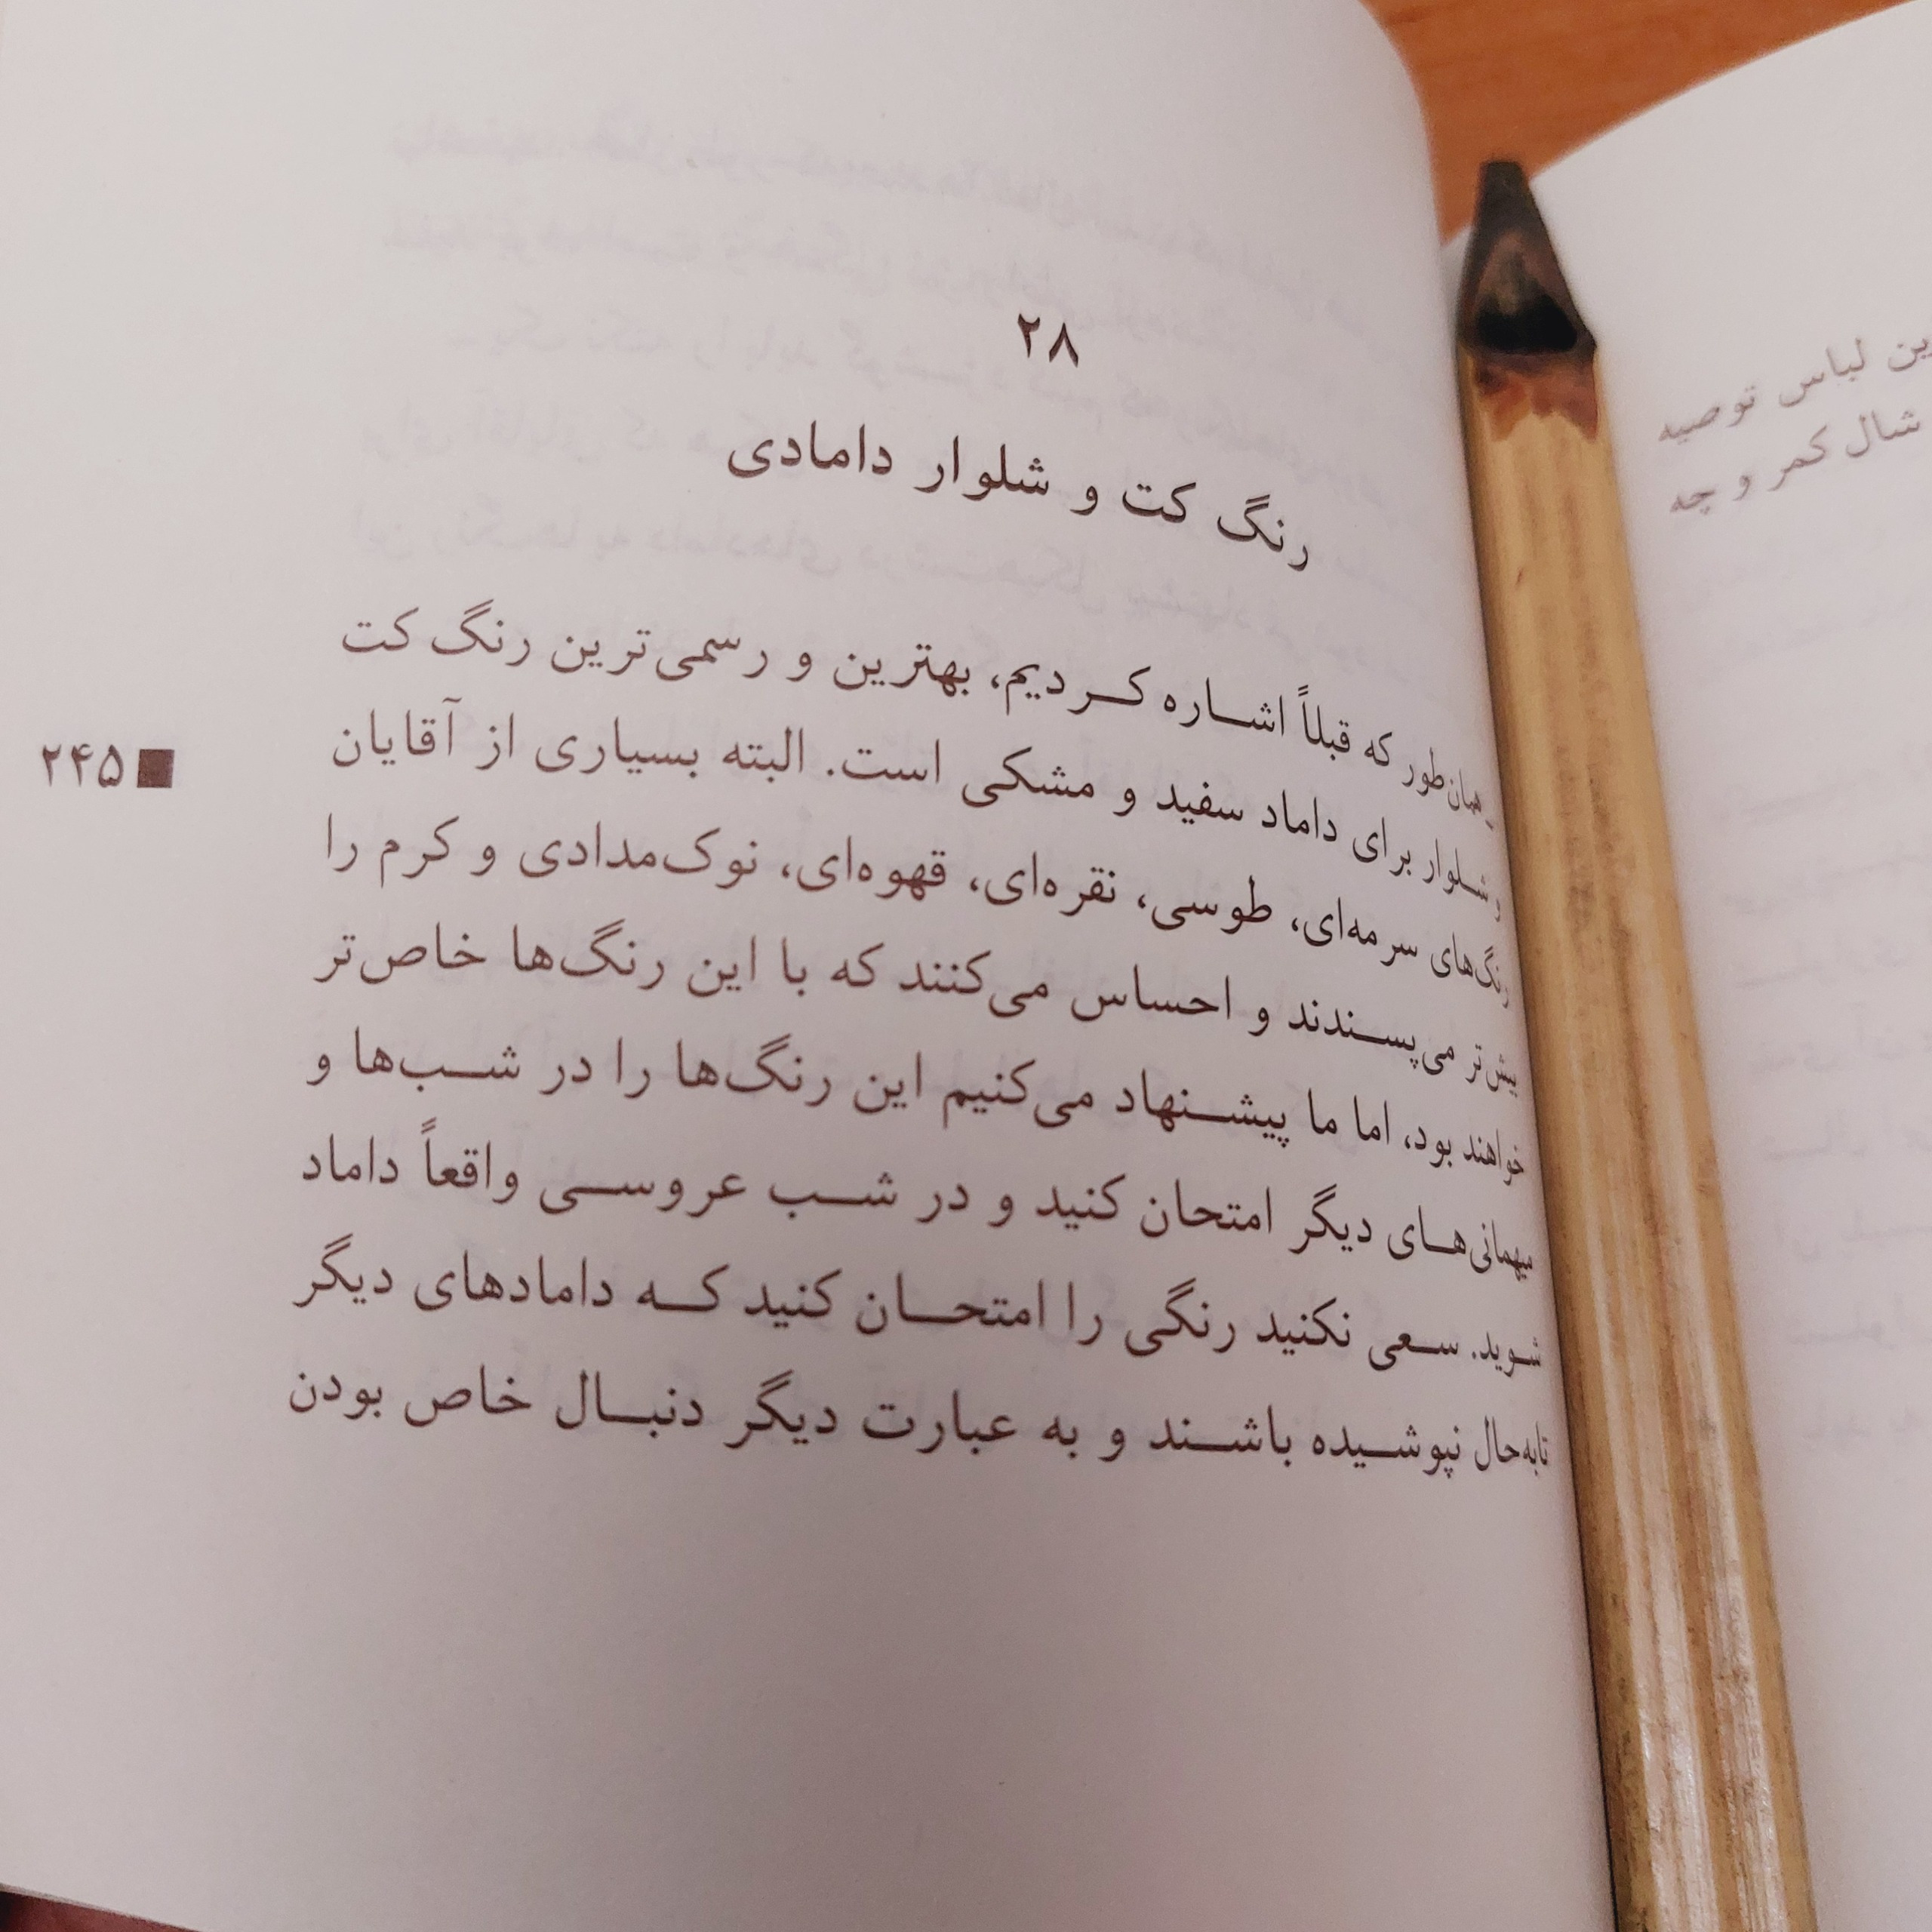 ین لباس توصیه
شال کمر و چه
۲۸
رنگ کت و شلوار دامادی
همان‌طور که قبلاً اشاره کردیم، بهترین و رسمی‌ترین رنگ کت
و شلوار برای داماد سفید و مشکی است. البته بسیاری از آقایان
رنگ‌های سرمه‌ای، طوسی، نقره‌ای، قهوه‌ای، نوک‌مدادی و کرم را
بیش‌تر می‌پسندند و احساس می‌کنند که با این رنگ‌ها خاص‌تر
خواهند بود، اما ما پیشنهاد می‌کنیم این رنگ‌ها را در شب‌ها و
میهمانی‌های دیگر امتحان کنید و در شب عروسی واقعاً داماد
شوید. سعی نکنید رنگی را امتحان کنید که دامادهای دیگر
تابه‌حال نپوشیده باشند و به عبارت دیگر دنبال خاص بودن
۲۴۵